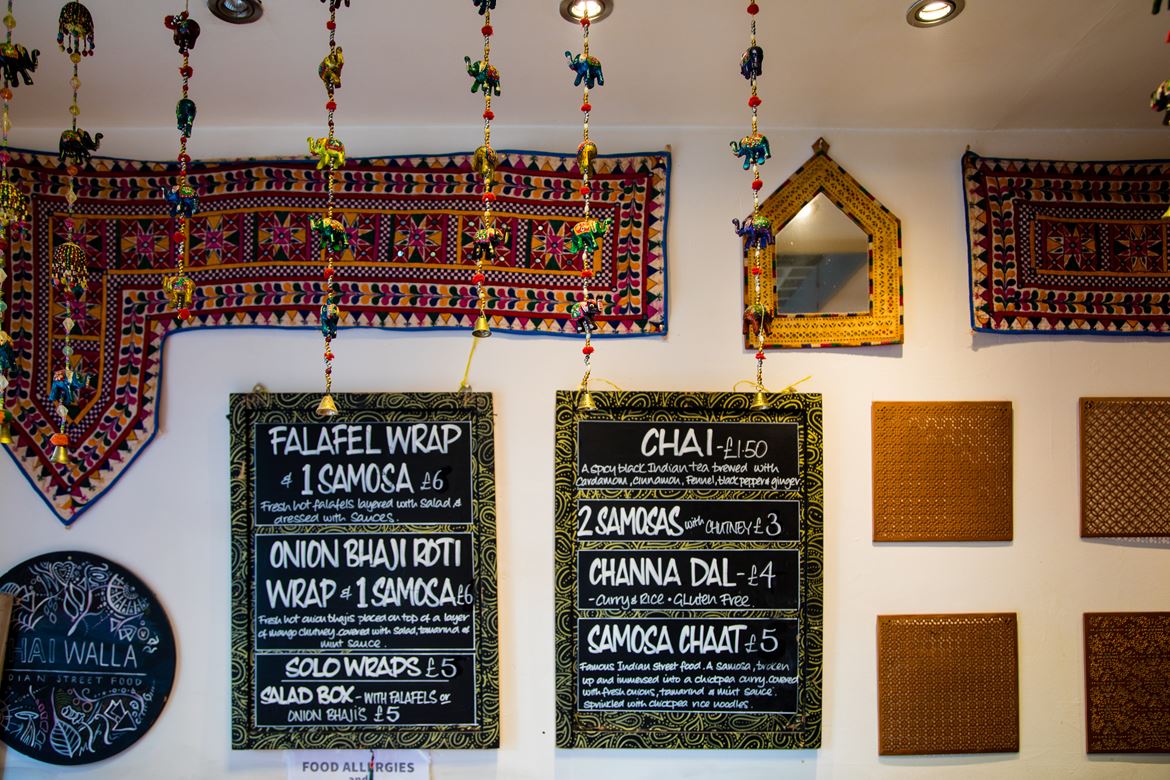 FALAFEL WRAP
& 1 SAMOSA £6
Fresh hot falafels layered with salad &
dressed with sauces.
ONION BHAJI ROTI
WRAP & 1 SAMOSA £6
Fresh hot onion bhajis placed on top of a layer
of mango chutney covered with salad, tamarind &
mint sauce.
SOLO WRAPS £5
SALAD BOX - WITH FALAFELS or
ONION BHAJI'S £5
CHAI - £1.50
A spicy black Indian tea brewed with
Cardamom, cinnamon, Fennel, black pepper & ginger.
2 SAMOSAS with CHUTNEY £3
CHANNA DAL - £4
- Curry & Rice • Gluten Free.
SAMOSA CHAAT £5
Famous Indian street food. A samosa, broken
up and immersed into a chickpea curry. covered
with fresh onions, tamarind & mint sauce.
sprinkled with chickpea rice noodles.
HAI WALLA
DIAN STREET FOOD
FOOD ALLERGIES
and